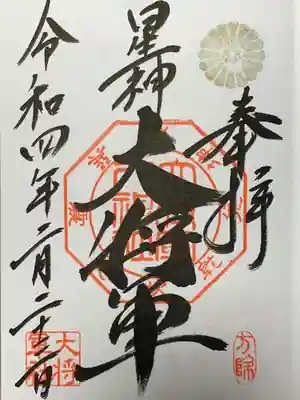 奉拝
星神
大将軍
令和四年二月二十三日
大将
方除